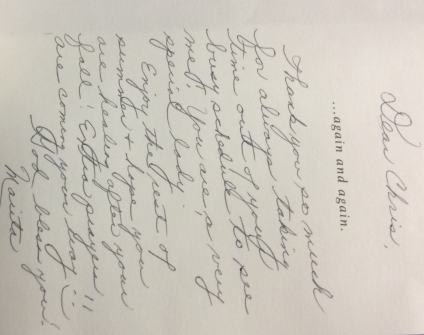 Dear Chris,
...again and again.
Thank you so much
for always taking
time out of your
busy schedule to see
me! You are a very
special lady.
Enjoy the rest of
summer & hope you
are healing after your
fall! Extra prayers!!
are coming your way :)
God bless you!